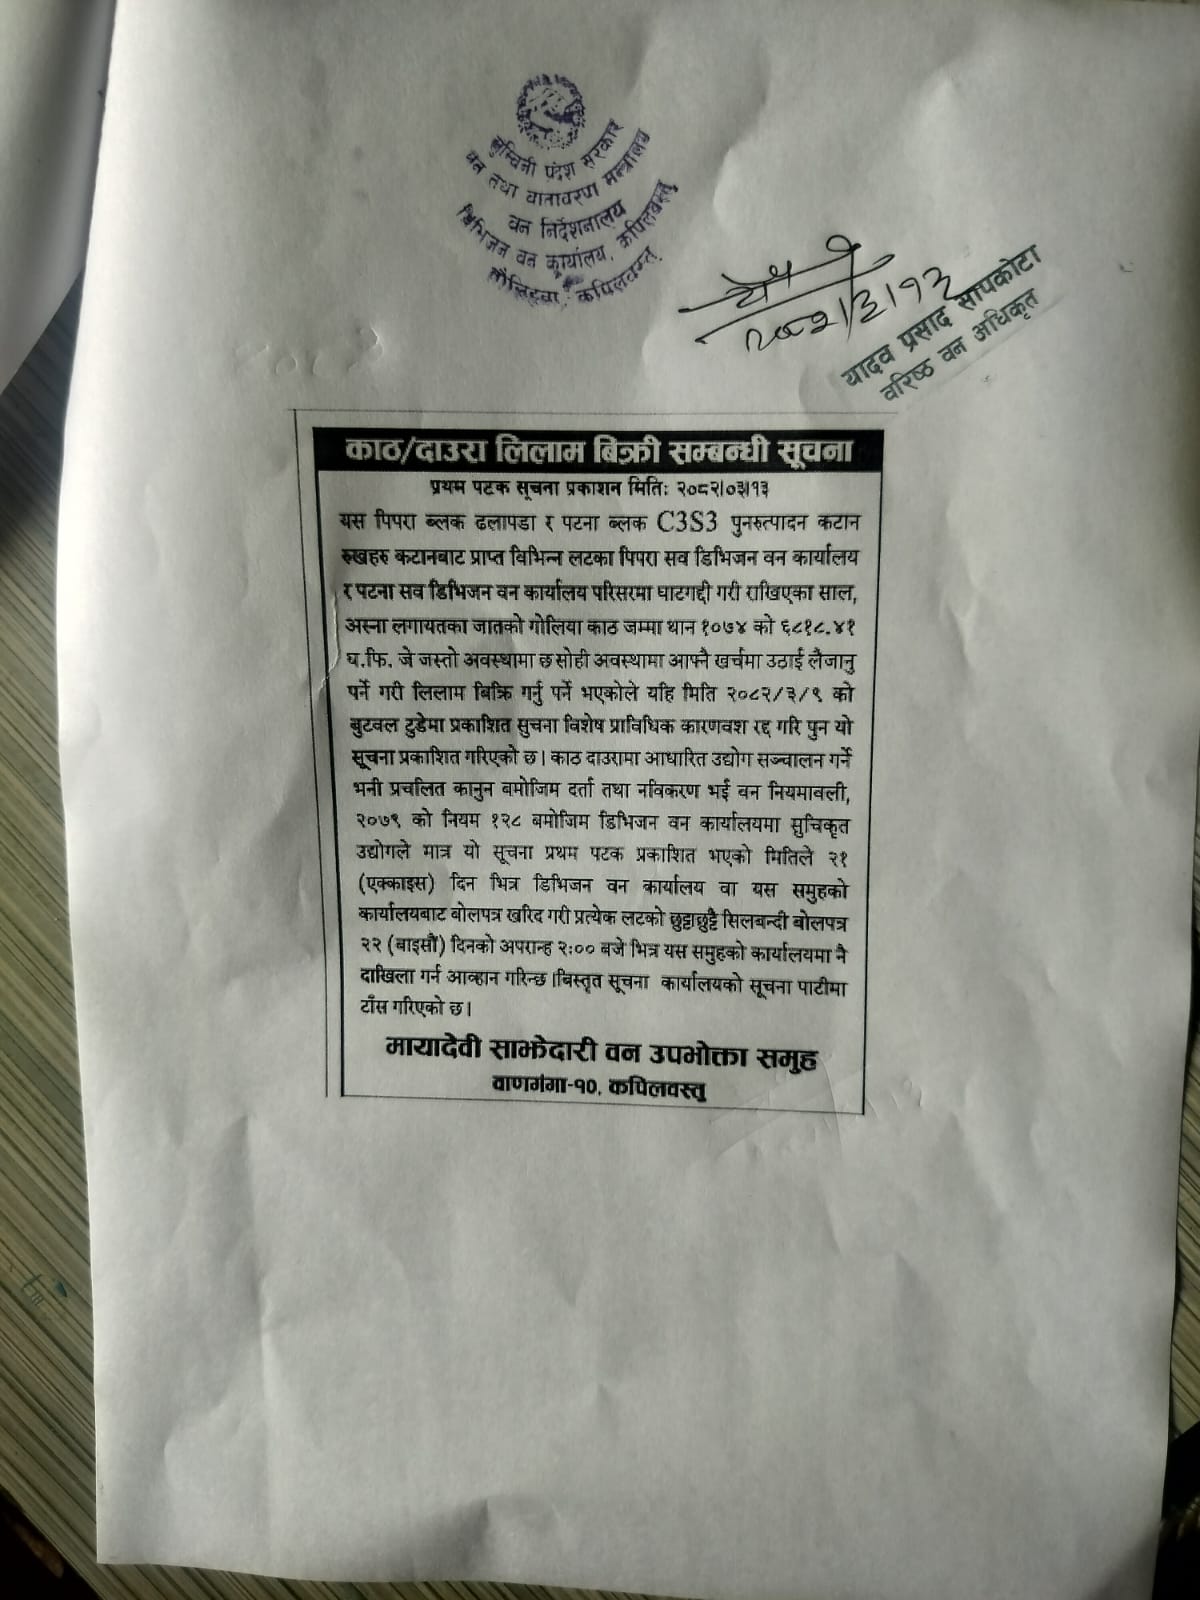 लुम्बिनी प्रदेश सरकार
वन तथा वातावरण मन्त्रालय
वन निर्देशनालय
डिभिजन वन कार्यालय, कपिलवस्तु
तौलिहवा, कपिलवस्तु
२०८२/३/१३
यादव प्रसाद सापकोटा
वरिष्ठ वन अधिकृत
काठ/दाउरा लिलाम बिक्री सम्बन्धी सूचना
प्रथम पटक सूचना प्रकाशन मितिः २०८२।०३।१३
यस पिपरा ब्लक ढलापडा र पटना ब्लक C3S3 पुनरुत्पादन कटान
रुखहरु कटानबाट प्राप्त विभिन्न लटका पिपरा सव डिभिजन वन कार्यालय
र पटना सव डिभिजन वन कार्यालय परिसरमा घाटगद्दी गरी राखिएका साल,
अस्ना लगायतका जातको गोलिया काठ जम्मा थान १०७४ को ६८१८.४१
घ.फि. जे जस्तो अवस्थामा छ सोही अवस्थामा आफ्नै खर्चमा उठाई लैजानु
पर्ने गरी लिलाम बिक्रि गर्नु पर्ने भएकोले यहि मिति २०८२/३/९ को
बुटवल टुडेमा प्रकाशित सुचना विशेष प्राविधिक कारणवश रद्द गरि पुन यो
सूचना प्रकाशित गरिएको छ। काठ दाउरामा आधारित उद्योग सञ्चालन गर्ने
भनी प्रचलित कानुन बमोजिम दर्ता तथा नविकरण भई वन नियमावली,
२०७९ को नियम १२८ बमोजिम डिभिजन वन कार्यालयमा सुचिकृत
उद्योगले मात्र यो सूचना प्रथम पटक प्रकाशित भएको मितिले २१
(एक्काइस) दिन भित्र डिभिजन वन कार्यालय वा यस समुहको
कार्यालयबाट बोलपत्र खरिद गरी प्रत्येक लटको छुट्टाछुट्टै सिलबन्दी बोलपत्र
२२ (बाइसौं) दिनको अपरान्ह २:०० बजे भित्र यस समुहको कार्यालयमा नै
दाखिला गर्न आव्हान गरिन्छ।बिस्तृत सूचना कार्यालयको सूचना पाटीमा
टाँस गरिएको छ।
मायादेवी साझेदारी वन उपभोक्ता समुह
वाणगंगा-१०, कपिलवस्तु